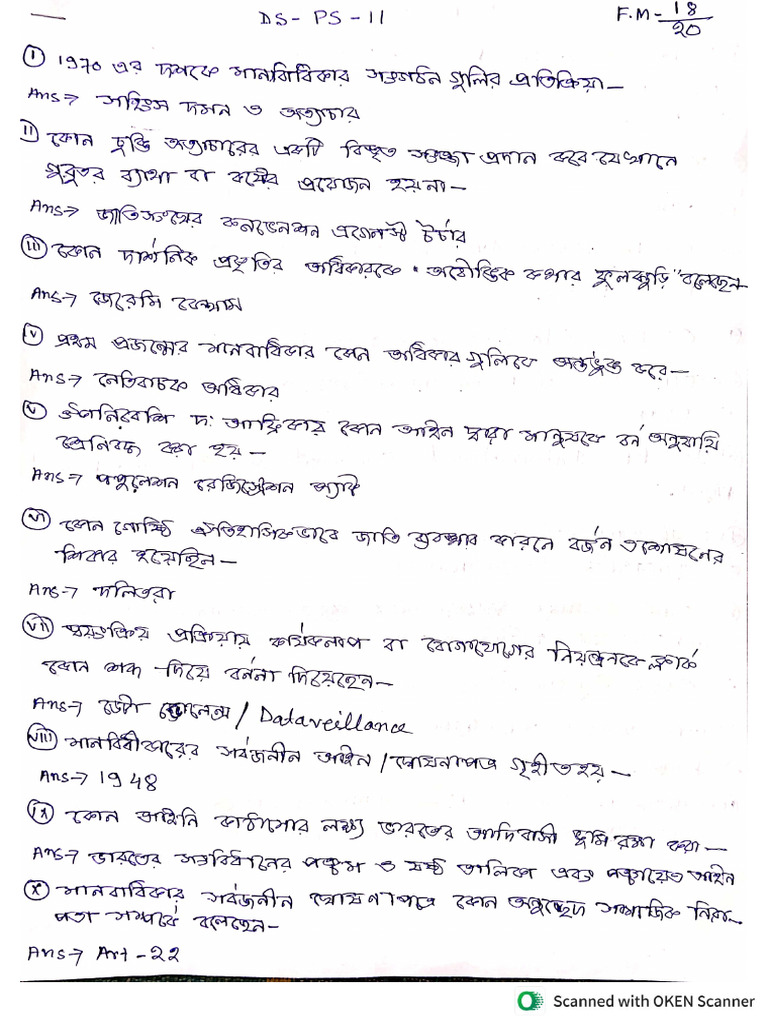 DS - PS - 11
F.M - 18/20
(i) 1970 এর দশকে মানবাধিকার সংগঠন গুলির প্রতিক্রিয়া –
Ans → সহিংস দমন ও অত্যাচার
ii) কোন চুক্তি অত্যাচারের একটি বিস্তৃত সংজ্ঞা প্রদান করে যেখানে
গুরুতর ব্যাথা বা কষ্টের প্রয়োজন হয়না –
Ans → জাতিসংঘের কনভেনশন এগেনস্ট টর্চার
(iii) কোন দার্শনিক প্রকৃতির অধিকারকে "অযৌক্তিক কথার ফুলঝুড়ি" বলেছেন
Ans → জেরেমি বেন্থাম
(v) প্রথম প্রজন্মের মানবাধিকার কোন অধিকার গুলিকে অন্তর্ভুক্ত করে –
Ans → নেতিবাচক অধিকার
(v) ঔপনিবেশি দঃ আফ্রিকার কোন আইন দ্বারা মানুষকে বর্ন অনুযায়ি
শ্রেনিবদ্ধ করা হয় –
Ans → পপুলেশন রেজিস্ট্রেশন অ্যাক্ট
(vi) কোন গোষ্ঠি ঐতিহাসিকভাবে জাতি ব্যবস্থার কারনে বর্জন ও শোষনের
শিকার হয়েছিন –
Ans → দলিতরা
(vii) স্বয়ংক্রিয় প্রক্রিয়ায় কার্যকলাপ বা যোগাযোগের নিয়ন্ত্রনকে ক্লার্ক
কোন শব্দ দিয়ে বর্ননা দিয়েছেন –
Ans → ডেটা ভেলেন্স / Dataveillance
(viii) মানবাধীকারের সর্বজনীন আইন / ঘোষনাপত্র গৃহীত হয় –
Ans → 1948
(ix) কোন আইনি কাঠামোর লক্ষ্য ভারতের আদিবাসী ভূমি রক্ষা করা –
Ans → ভারতের সংবিধানের পঞ্চম ও ষষ্ঠ তালিকা এবং পঞ্চায়েত আইন
(x) মানবাধিকার সর্বজনীন ঘোষণাপত্রে কোন অনুচ্ছেদ সামাজিক নিরা-
পত্তা সম্পর্কে বলেছেন –
Ans → Art - 22
Scanned with OKEN Scanner